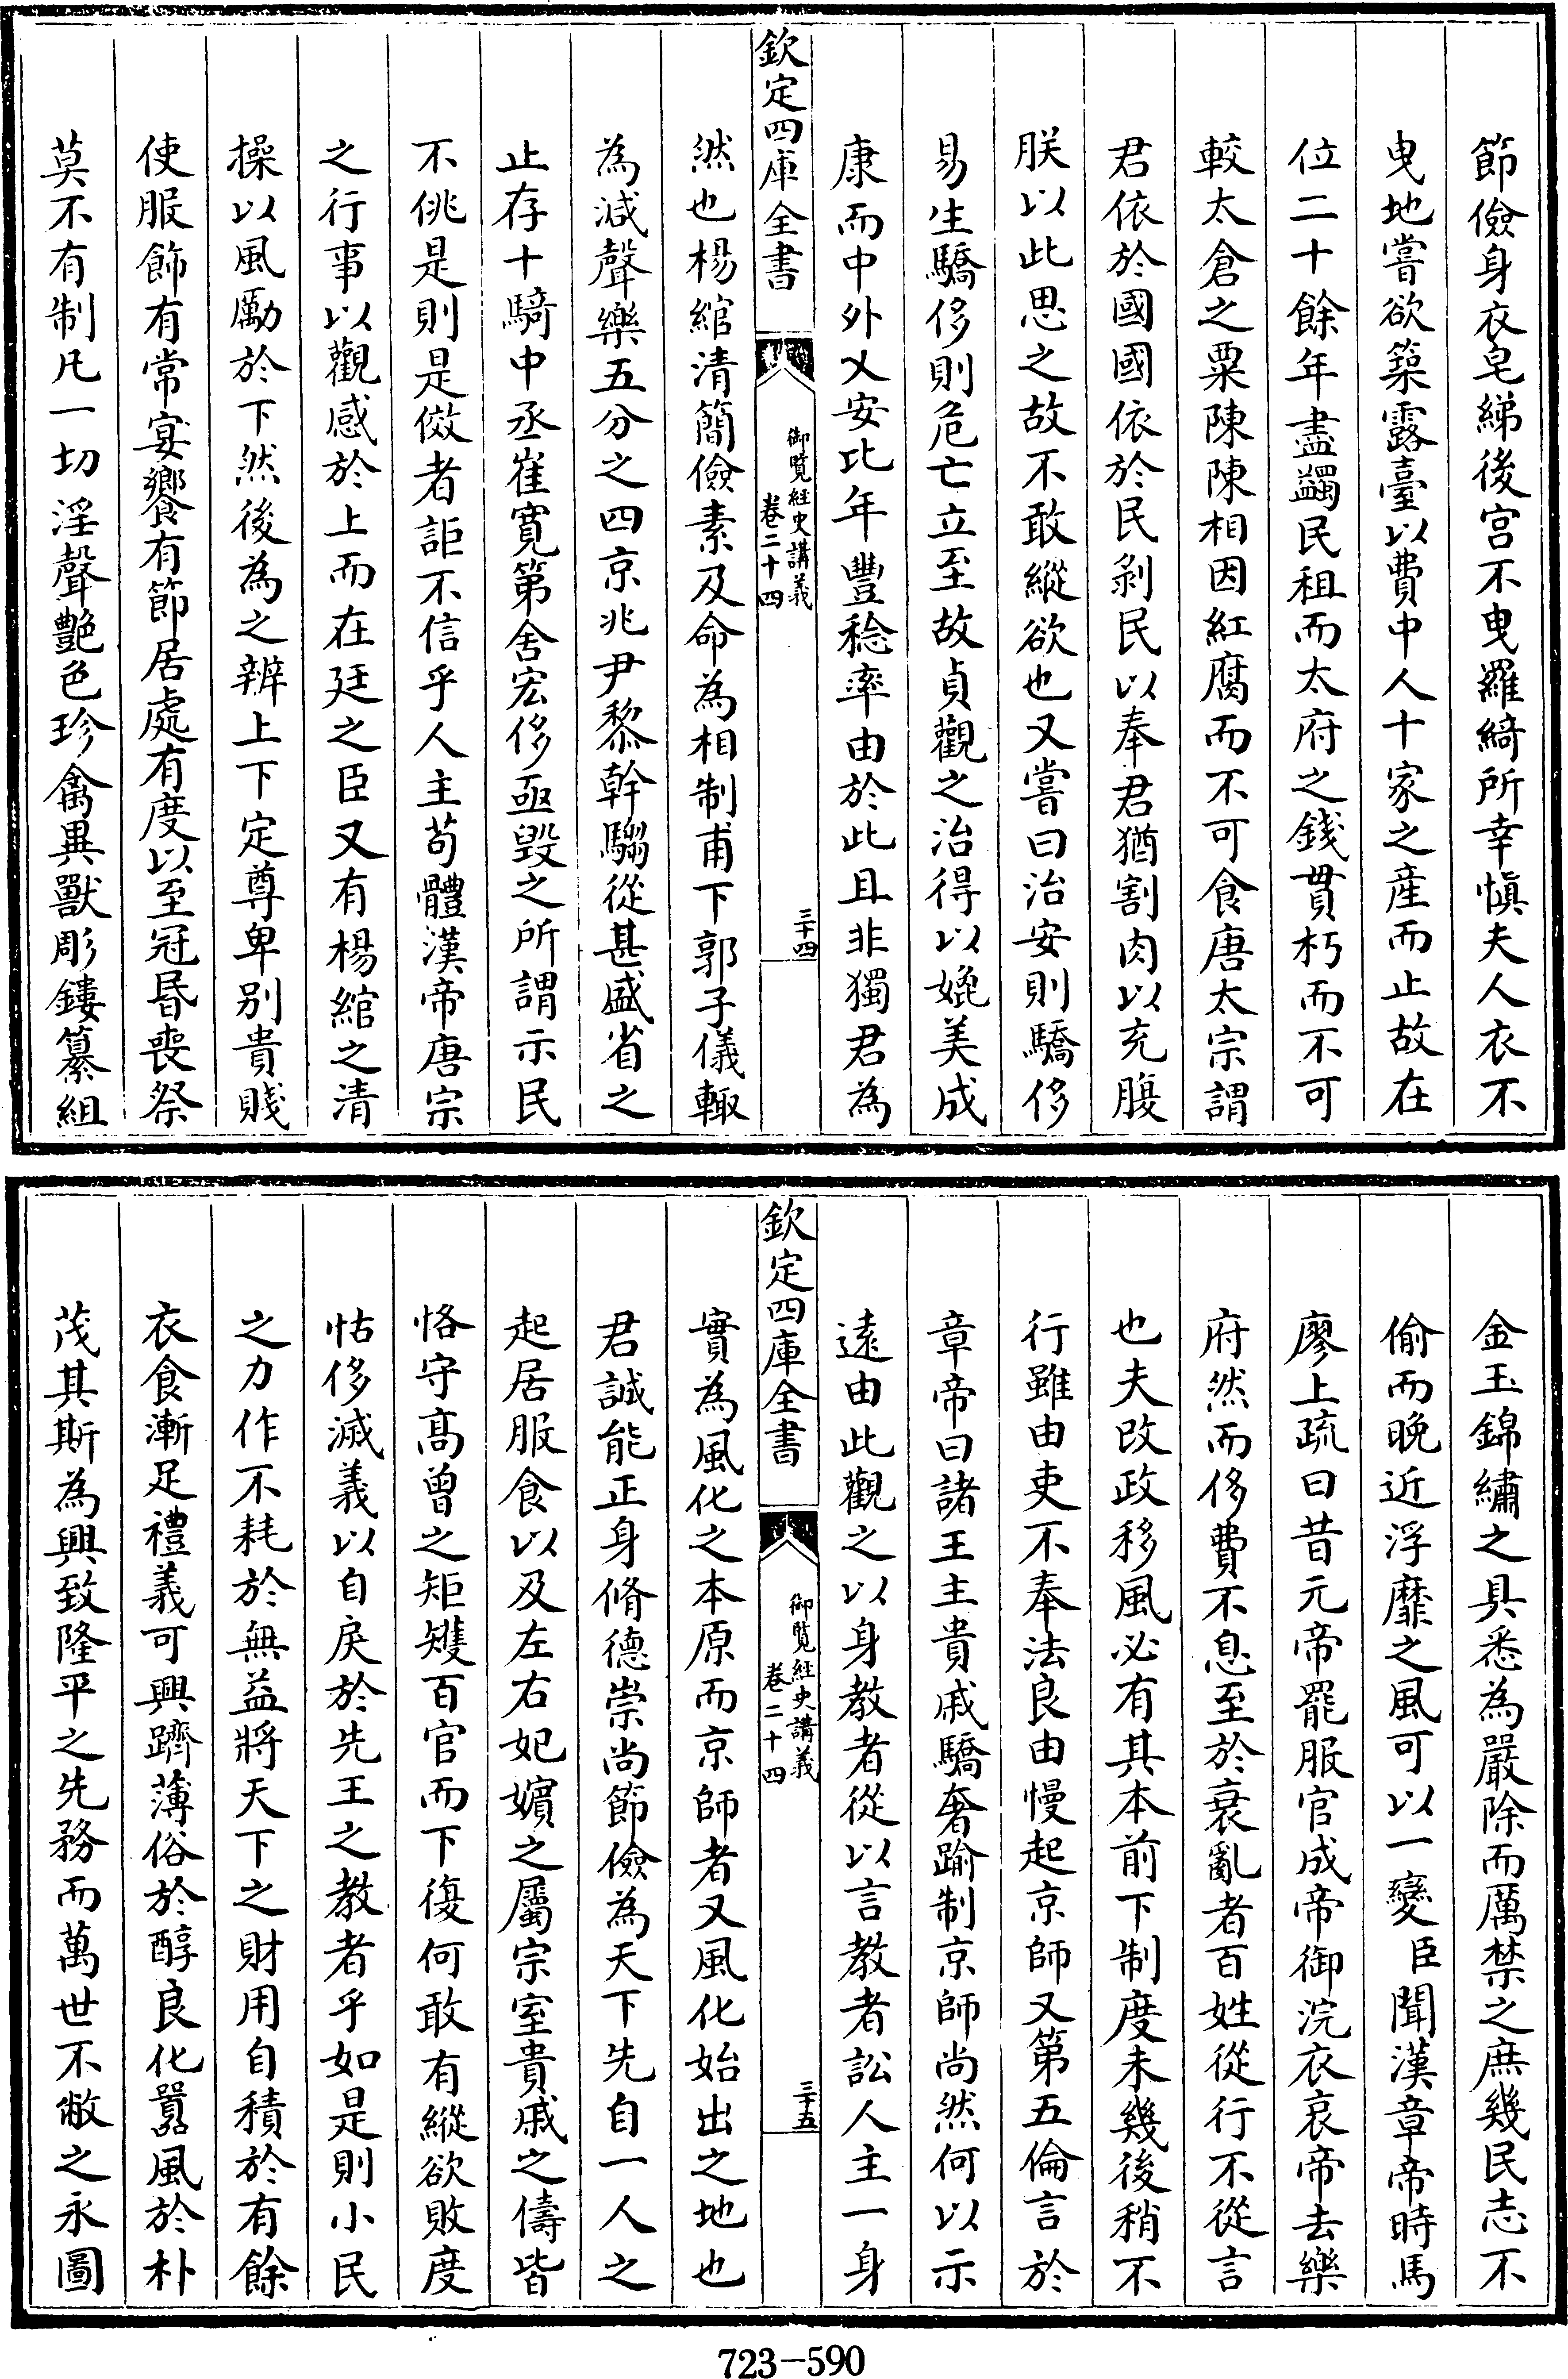 節儉身衣皂綈後宮不曳羅綺所幸慎夫人衣不
曳地嘗欲築露臺以費中人十家之産而止故在
位二十餘年盡蠲民租而太府之錢貫朽而不可
較太倉之粟陳陳相因紅腐而不可食唐太宗謂
君依於國國依於民剥民以奉君猶割肉以充腹
朕以此思之故不敢縱欲也又嘗曰治安則驕侈
易生驕侈則危亡立至故貞觀之治得以媲美成
康而中外乂安比年豐稔率由於此且非獨君為
欽定四庫全書
御覽經史講義
卷二十四
三十四
然也楊綰清簡儉素及命為相制甫下郭子儀輙
為減聲樂五分之四京兆尹黎幹騶從甚盛省之
止存十騎中丞崔寛第舍宏侈亟毀之所謂示民
不佻是則是傚者詎不信乎人主苟體漢帝唐宗
之行事以觀感於上而在廷之臣又有楊綰之清
操以風勵於下然後為之辨上下定尊卑别貴賤
使服飾有常宴饗有節居處有度以至冠昏喪祭
莫不有制凡一切淫聲艷色珍禽異獸彫鏤纂組
金玉錦繡之具悉為嚴除而厲禁之庶幾民志不
偷而晚近浮靡之風可以一變臣聞漢章帝時馬
廖上疏曰昔元帝罷服官成帝御浣衣哀帝去樂
府然而侈費不息至於衰亂者百姓從行不從言
也夫改政移風必有其本前下制度未幾後稍不
行雖由吏不奉法良由慢起京師又第五倫言於
章帝曰諸王主貴戚驕奢踰制京師尚然何以示
逺由此觀之以身教者從以言教者訟人主一身
欽定四庫全書
御覽經史講義
卷二十四
三十五
實為風化之本原而京師者又風化始出之地也
君誠能正身脩德崇尚節儉為天下先自一人之
起居服食以及左右妃嬪之屬宗室貴戚之儔皆
恪守髙曾之矩矱百官而下復何敢有縱欲敗度
怙侈滅義以自戾於先王之教者乎如是則小民
之力作不耗於無益將天下之財用自積於有餘
衣食漸足禮義可興躋薄俗於醇良化嚚風於朴
茂其斯為興致隆平之先務而萬世不敝之永圖
723-590